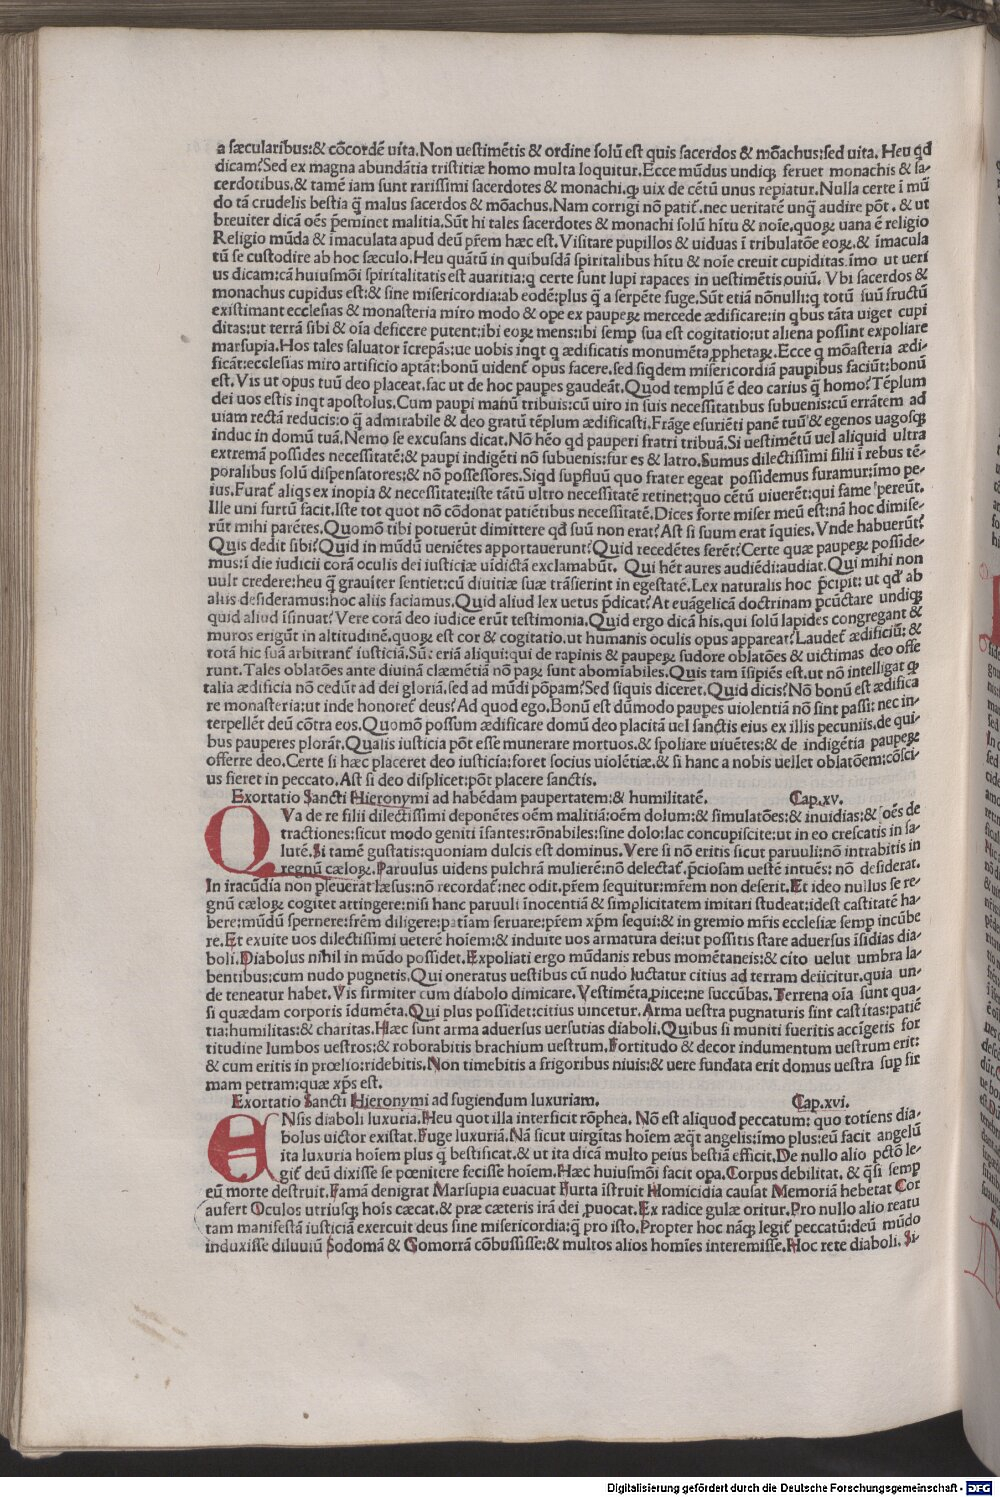 a sæcularibus:& cõcordẽ uita. Non uestimẽtis & ordine solũ est quis sacerdos & mõachus:sed uita. Heu qđ
dicam? Sed ex magna abundãtia tristitiæ homo multa loquitur. Ecce mũdus undiqꝫ feruet monachis & sa-
cerdotibus.& tamẽ iam sunt rarissimi sacerdotes & monachi.qꝫ uix de cẽtũ unus repiatur. Nulla certe ĩ mũ
do tã crudelis bestia q̃ malus sacerdos & mõachus. Nam corrigi nõ patit̃.nec ueritatẽ unq̃ audire põt.& ut
breuiter dicã oẽs p̃eminet malitia. Sũt hi tales sacerdotes & monachi solũ hĩtu & noĩe.quoꝝ uana ẽ religio
Religio mũda & ĩmaculata apud deũ p̃rem hæc est. Visitare pupillos & uiduas ĩ tribulatõe eoꝝ.& ĩmacula
tũ se custodire ab hoc sæculo. Heu quãtũ in quibusdã spiritalibus hĩtu & noĩe creuit cupiditas.ĩmo ut ueri
us dicam:cã huiusmõi spiritalitatis est auaritia:q certe sunt lupi rapaces in uestimẽtis ouiũ. Vbi sacerdos &
monachus cupidus est:& sine misericordia:ab eodẽ:plus q̃ a serpẽte fuge. Sũt etiã nõnulli:q totũ suũ fructũ
existimant ecclesias & monasteria miro modo & ope ex paupeꝝ mercede ædificare:in qbus tãta uiget cupi
ditas:ut terrã sibi & oĩa deficere putent:ibi eoꝝ mens:ibi semp sua est cogitatio:ut aliena possint expoliare
marsupia. Hos tales saluator ĩcrepãs:ue uobis inqt q ædificatis monumẽta pphetaꝝ. Ecce q mõasteria ædi-
ficãt:ecclesias miro artificio aptãt:bonũ uident̃ opus facere.sed siqdem misericordiã paupibus faciũt:bonũ
est. Vis ut opus tuũ deo placeat.fac ut de hoc paupes gaudeãt. Quod templũ ẽ deo carius q̃ homo? Tẽplum
dei uos estis inqt apostolus. Cum paupi manũ tribuis:cũ uiro in suis necessitatibus subuenis:cũ errãtem ad
uiam rectã reducis:o q̃ admirabile & deo gratũ tẽplum ædificasti. Frãge esuriẽti panẽ tuũ & egenos uagosqꝫ
induc in domũ tuã. Nemo se excusans dicat. Nõ hẽo qd pauperi fratri tribuã. Si uestimẽtũ uel aliquid ultra
extremã possides necessitatẽ:& paupi indigẽti nõ subuenis:fur es & latro. Sumus dilectissimi filii ĩ rebus tẽ-
poralibus solũ dispensatores:& nõ possessores. Siqd supfluũ quo frater egeat possidemus furamur:ĩmo pe-
ius. Furat̃ aliqs ex inopia & necessitate:iste tãtũ ultro necessitatẽ retinet:quo cẽtũ uiuerẽt:qui fame pereũt.
Ille uni furtũ facit. Iste tot quot nõ cõdonat patiẽtibus necessitatẽ. Dices forte miser meũ est:nã hoc dimise-
rũt mihi parẽtes. Quomõ tibi potuerũt dimittere qđ suũ non erat? Ast si suum erat ĩquies. Vnde habuerũt?
Quis dedit sibi? Quid in mũdũ ueniẽtes apportauerunt? Quid recedẽtes serẽt? Certe quæ paupeꝝ posside-
mus:ĩ die iudicii corã oculis dei iusticiæ uĩdictã exclamabũt. Qui hẽt aures audiẽdi:audiat. Qui mihi non
uult credere:heu q̃ grauiter sentiet:cũ diuitiæ suæ trãsierint in egestatẽ. Lex naturalis hoc p̃cipit: ut qđ ab
aliis desideramus:hoc aliis faciamus. Quid aliud lex uetus p̃dicat? At euãgelicã doctrinam pcũctare undiqꝫ
quid aliud ĩsinuat? Vere corã deo iudice erũt testimonia. Quid ergo dicã his.qui solũ lapides congregant &
muros erigũt in altitudinẽ.quoꝝ est cor & cogitatio.ut humanis oculis opus appareat? Laudet̃ ædificiũ: &
totã hic suã arbitrant̃ iusticiã. Sũt etiã aliqui:qui de rapinis & paupeꝝ sudore oblatões & uictimas deo offe
runt. Tales oblatões ante diuinã clæmẽtiã nõ paꝝ sunt abomĩabiles. Quis tam ĩsipiẽs est.ut nõ intelligat qꝫ
talia ædificia nõ cedũt ad dei gloriã.sed ad mũdi põpam? Sed siquis diceret. Quid dicis? Nõ bonũ est ædifica
re monasteria:ut inde honoret̃ deus? Ad quod ego. Bonũ est dũmodo paupes uiolentiã nõ sint passi: nec in-
terpellẽt deũ cõtra eos. Quomõ possum ædificare domũ deo placitã uel sanctis eius ex illis pecuniis.de qui-
bus pauperes plorãt. Qualis iusticia põt esse munerare mortuos.& spoliare uiuẽtes:& de indigẽtia paupeꝝ
offerre deo. Certe si hæc placeret deo iusticia:foret socius uiolẽtiæ.& si hanc a nobis uellet oblatõem:cõsci-
us fieret in peccato. Ast si deo displicet:põt placere sanctis.
Exortatio Sancti Hieronymi ad habẽdam paupertatem:& humilitatẽ. Cap.xv.
QVa de re filii dilectissimi deponẽtes oẽm malitiã:oẽm dolum:& simulatões:& inuidias:& oẽs de
tractiones:sicut modo geniti ĩfantes:rõnabiles:sine dolo:lac concupiscite:ut in eo crescatis in sa-
lutẽ. Si tamẽ gustatis:quoniam dulcis est dominus. Vere si nõ eritis sicut paruuli:nõ intrabitis in
regnũ cæloꝝ. Paruulus uidens pulchrã mulierẽ:nõ delectat̃.p̃ciosam uestẽ intuẽs: nõ desiderat.
In iracũdia non pseuerat læsus:nõ recordat̃:nec odit.p̃rem sequitur:mr̃em non deserit. Et ideo nullus se re-
gnũ cæloꝝ cogitet attingere:nisi hanc paruuli ĩnocentiã & simplicitatem imitari studeat:idest castitatẽ ha-
bere:mũdũ spernere:frẽm diligere:patĩam seruare:p̃rem xp̃m sequi:& in gremio mr̃is ecclesiæ semp incũbe
re. Et exuite uos dilectissimi ueterẽ hoĩem:& induite uos armatura dei:ut possitis stare aduersus ĩsidias dia-
boli. Diabolus nihil in mũdo possidet. Expoliati ergo mũdanis rebus momẽtaneis:& cito uelut umbra la-
bentibus:cum nudo pugnetis. Qui oneratus uestibus cũ nudo luctatur citius ad terram deiicitur.quia un-
de teneatur habet. Vis firmiter cum diabolo dimicare. Vestimẽta piice:ne succũbas. Terrena oĩa sunt qua-
si quædam corporis ĩdumẽta. Qui plus possidet:citius uincetur. Arma uestra pugnaturis sint castitas:patiẽ
tia:humilitas:& charitas. Hæc sunt arma aduersus uersutias diaboli. Quibus si muniti fueritis accĩgetis for
titudine lumbos uestros:& roborabitis brachium uestrum. Fortitudo & decor indumentum uestrum erit:
& cum eritis in prœlio:ridebitis. Non timebitis a frigoribus niuis:& uere fundata erit domus uestra sup fir
mam petram:quæ xp̃s est.
Exortatio Sancti Hieronymi ad fugiendum luxuriam. Cap.xvi.
ENsis diaboli luxuria. Heu quot illa interficit rõphea. Nõ est aliquod peccatum: quo totiens dia-
bolus uictor existat. Fuge luxuriã. Nã sicut uirgitas hoĩem æq̃t angelis:ĩmo plus:eũ facit angelũ
ita luxuria hoĩem plus q̃ bestificat.& ut ita dicã multo peius bestiã efficit. De nullo alio pctõ le-
git̃ deũ dixisse se pœnitere fecisse hoĩem. Hæc huiusmõi facit opa. Corpus debilitat. & q̃si semp
eũ morte destruit. Famã denigrat Marsupia euacuat Furta ĩstruit Homicidia causat Memoriã hebetat Cor
aufert Oculos utriusqꝫ hoĩs cæcat.& præ cæteris irã dei puocat. Ex radice gulæ oritur. Pro nullo alio reatu
tam manifestã iusticiã exercuit deus sine misericordia:q̃ pro isto. Propter hoc nãqꝫ legit̃ peccatũ:deũ mũdo
induxisse diluuiũ Sodomã & Gomorrã cõbussisse:& multos alios homĩes interemisse. Hoc rete diaboli. Si-
Digitalisierung gefördert durch die Deutsche Forschungsgemeinschaft - DFG